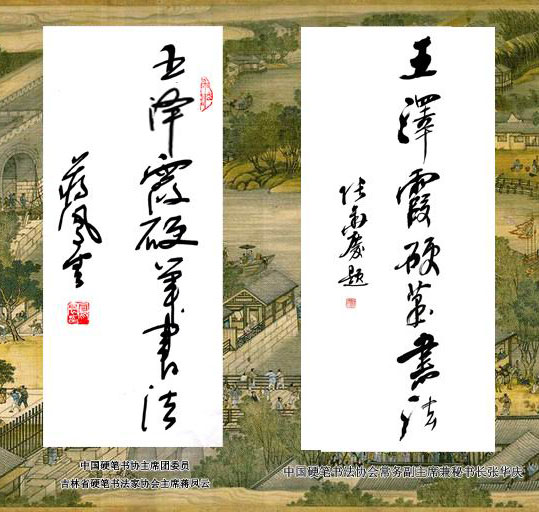 王泽霞硬笔书法
蒋凤云
王澤霞硬笔书法
张华庆题
中国硬笔书协主席团委员
吉林省硬笔书法家协会主席蒋凤云
中国硬笔书法协会常务副主席兼秘书长张华庆